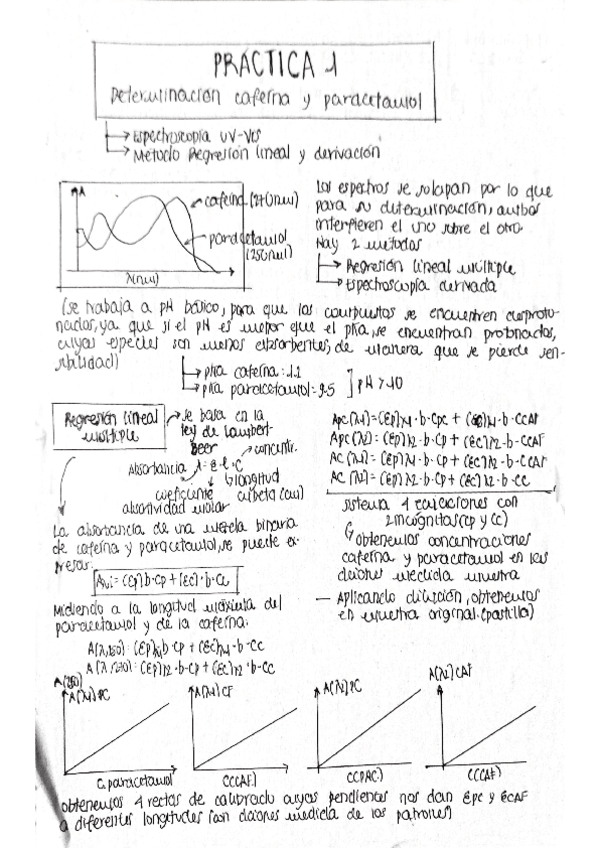 PRÁCTICA 1
Determinación cafeína y paracetamol
→ Espectroscopía UV-Vis
→ Método Regresión lineal y derivación
A
cafeína (270nm)
paracetamol
(250nm)
λ(nm)
Los espectros se solapan por lo que
para su determinación, ambos
interfieren el uno sobre el otro.
Hay 2 métodos
→ Regresión lineal múltiple
→ Espectroscopía derivada
(se trabaja a pH básico, para que los compuestos se encuentren desproto-
nados, ya que si el pH es menor que el pKa, se encuentran protonados,
cuyas especies son menos absorbentes, de manera que se pierde sen-
sibilidad)
→ pKa cafeína:
→ pKa paracetamol = 9.5 ] pH > 10
Regresión lineal
múltiple
→ se basa en la
ley de Lambert-
Beer
concentr.
Absorbancia A = ε·l·C
longitud
coeficiente cubeta (cm)
absortividad molar
La absorbancia de una mezcla binaria
de cafeína y paracetamol, se puede ex-
presar:
Aλi = (Ep)·b·Cp + (Ec)·b·Cc
Midiendo a la longitud máxima del
paracetamol y de la cafeína:
A(λ,250): (Ep)λ1·b·Cp + (Ec)λ1·b·Cc
A(λ,270): (Ep)λ2·b·Cp + (Ec)λ2·b·Cc
Apc(λ1)=(Ep)λ1·b·Cpc + λ1·b·CCAF
Apc(λ2)=(Ep)λ2·b·Cp + (Ec)λ2·b·CCAF
AC(λ1)=(Ep)λ1·b·Cp + (Ec)λ2·b·CCAF
AC(λ2)=(Ep)λ2·b·Cp + (Ec)λ2·b·CC
sistema 4 ecuaciones con
2 incógnitas (Cp y Cc)
obtenemos concentraciones
cafeína y paracetamol en las
disoluciones medida muestra
— Aplicando dilución, obtenemos
en muestra original. (pastilla)
A(250)
A(λ1)PC
C. paracetamol
A(λ1)CF
C(CAF)
A(λ2)PC
C(PAC)
A(λ2)CAF
C(CAF)
obtenemos 4 rectas de calibrado cuyas pendientes nos dan εPC y εCAF
a diferentes longitudes (son medida de los patrones)